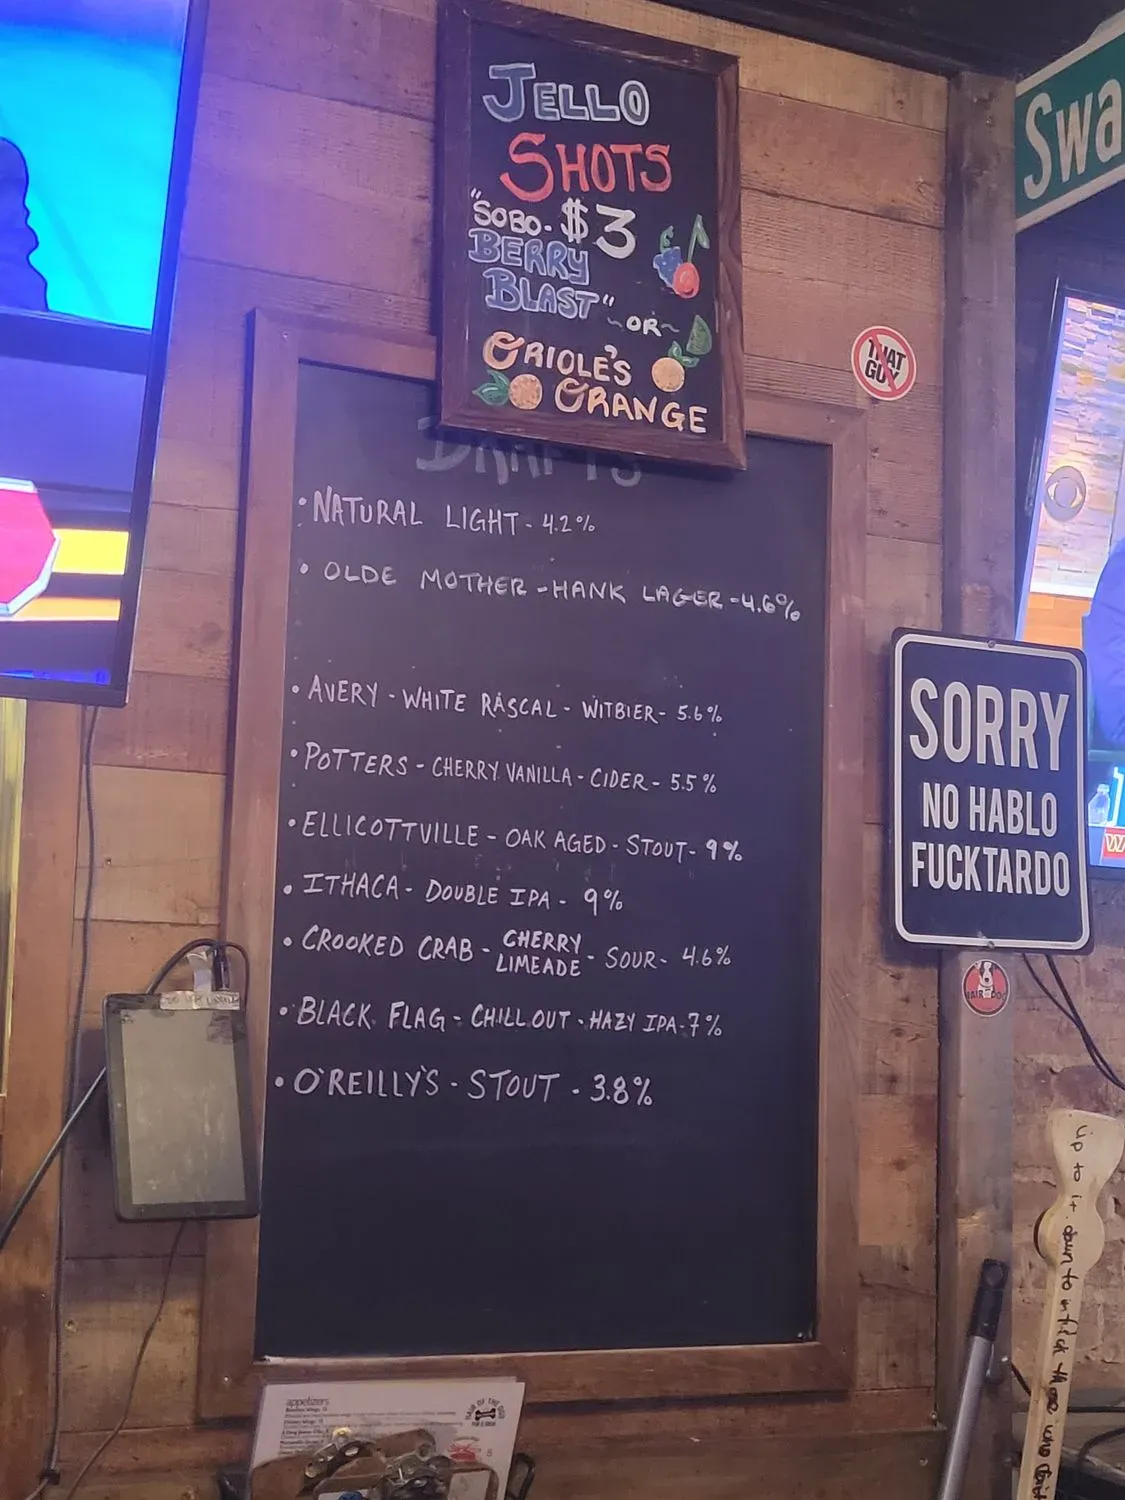 JELLO
SHOTS
"SOBO- $3
BERRY
BLAST"
~OR~
ORIOLE'S
ORANGE
Swa
THAT
GUY
DRAFTS
• NATURAL LIGHT - 4.2%
• OLDE MOTHER - HANK LAGER - 4.6%
• AVERY - WHITE RASCAL - WITBIER - 5.6%
• POTTERS - CHERRY VANILLA - CIDER - 5.5%
• ELLICOTTVILLE - OAK AGED - STOUT - 9%
• ITHACA - DOUBLE IPA - 9%
• CROOKED CRAB - CHERRY LIMEADE - SOUR - 4.6%
• BLACK FLAG - CHILL OUT - HAZY IPA - 7%
• O'REILLY'S - STOUT - 3.8%
SORRY
NO HABLO
FUCKTARDO
HAIR DOG
up to it down to it
appetizers
HAIR OF THE DOG